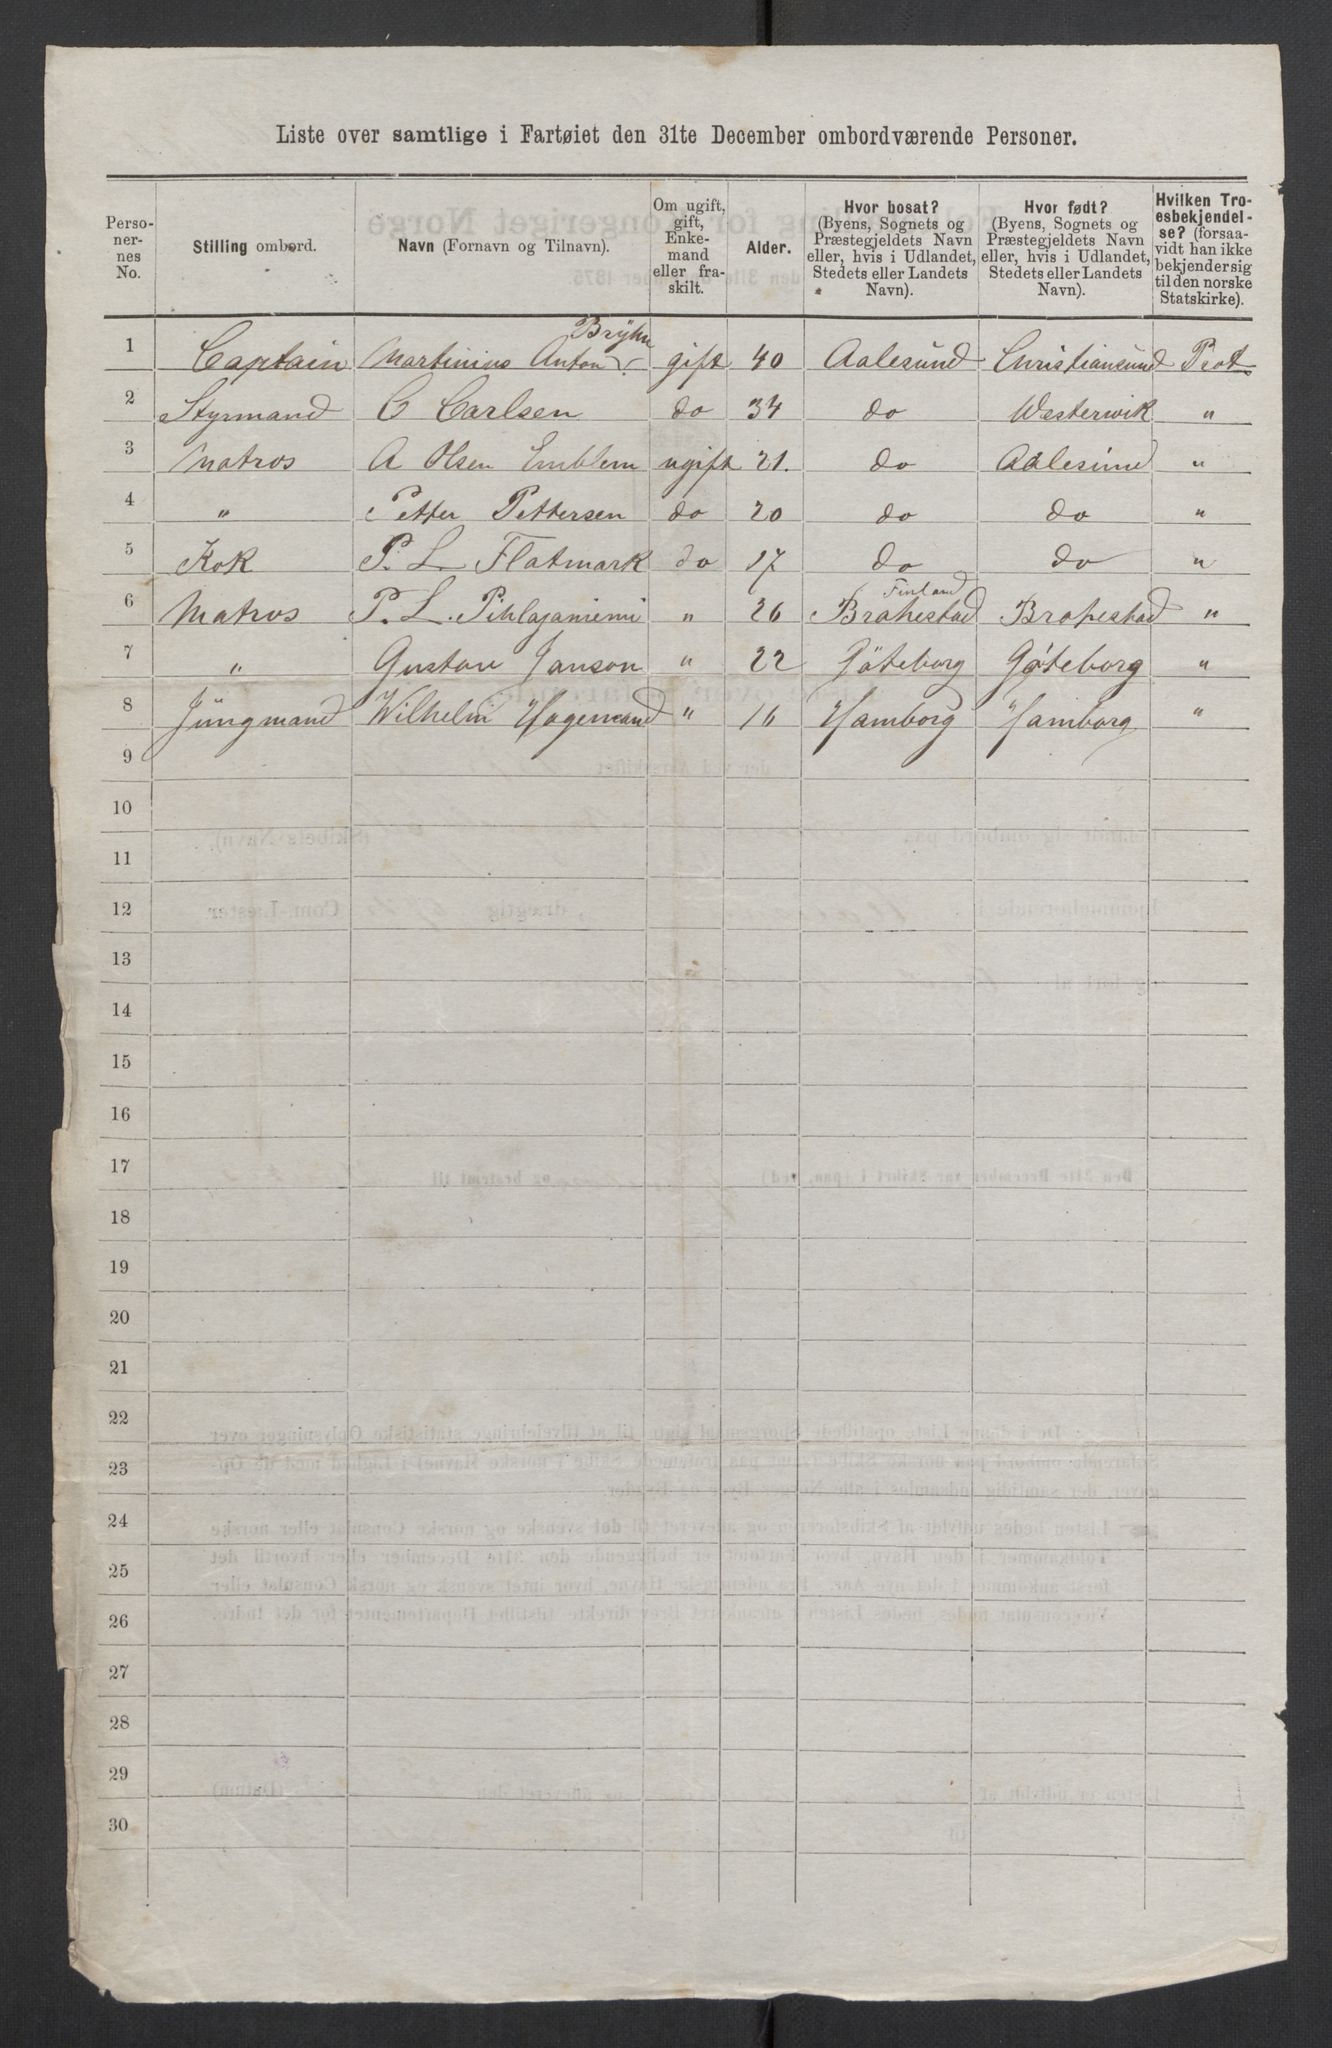 Liste over samtlige i Fartøiet den 31te December ombordværende Personer.
Perso-
ner-
nes
No.
Stilling ombord.
Navn (Fornavn og Tilnavn).
Om ugift,
gift,
Enke-
mand
eller fra-
skilt.
Alder.
Hvor bosat?
(Byens, Sognets og
Præstegjeldets Navn
eller, hvis i Udlandet,
Stedets eller Landets
Navn).
Hvor født?
(Byens, Sognets og
Præstegjeldets Navn
eller, hvis i Udlandet,
Stedets eller Landets
Navn).
Hvilken Tro-
esbekjendel-
se? (forsaa-
vidt han ikke
bekjender sig
til den norske
Statskirke).
Brÿhn
1 Captain Martinius Anton gift 40 Aalesund Christiansund Prot.
2 Styrmand C Carlsen do 34 do Westerwik "
3 Matros A Olsen Emblem ugift 21. do Aalesund "
4 " Petter Pettersen do 20 do do "
5 Kok P. L. Flatmark do 17 do do "
Finland
6 Matros P. L. Pihlajaniemi " 26 Brahestad Brahestad "
7 " Gustav Janson " 22 Göteborg Göteborg "
8 Jüngmand Wilhelm Hagemand " 16 Hamborg Hamborg "
9
10
11
12
13
14
15
16
17
18
19
20
21
22
23
24
25
26
27
28
29
30